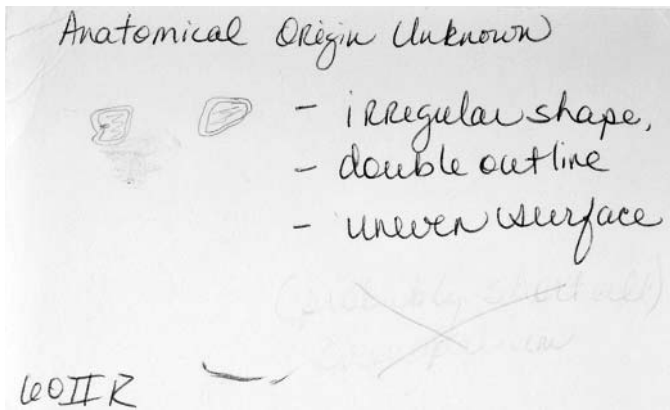 Anatomical Origin Unknown
- irregular shape,
- double outline
- uneven surface
(probably
60IIR